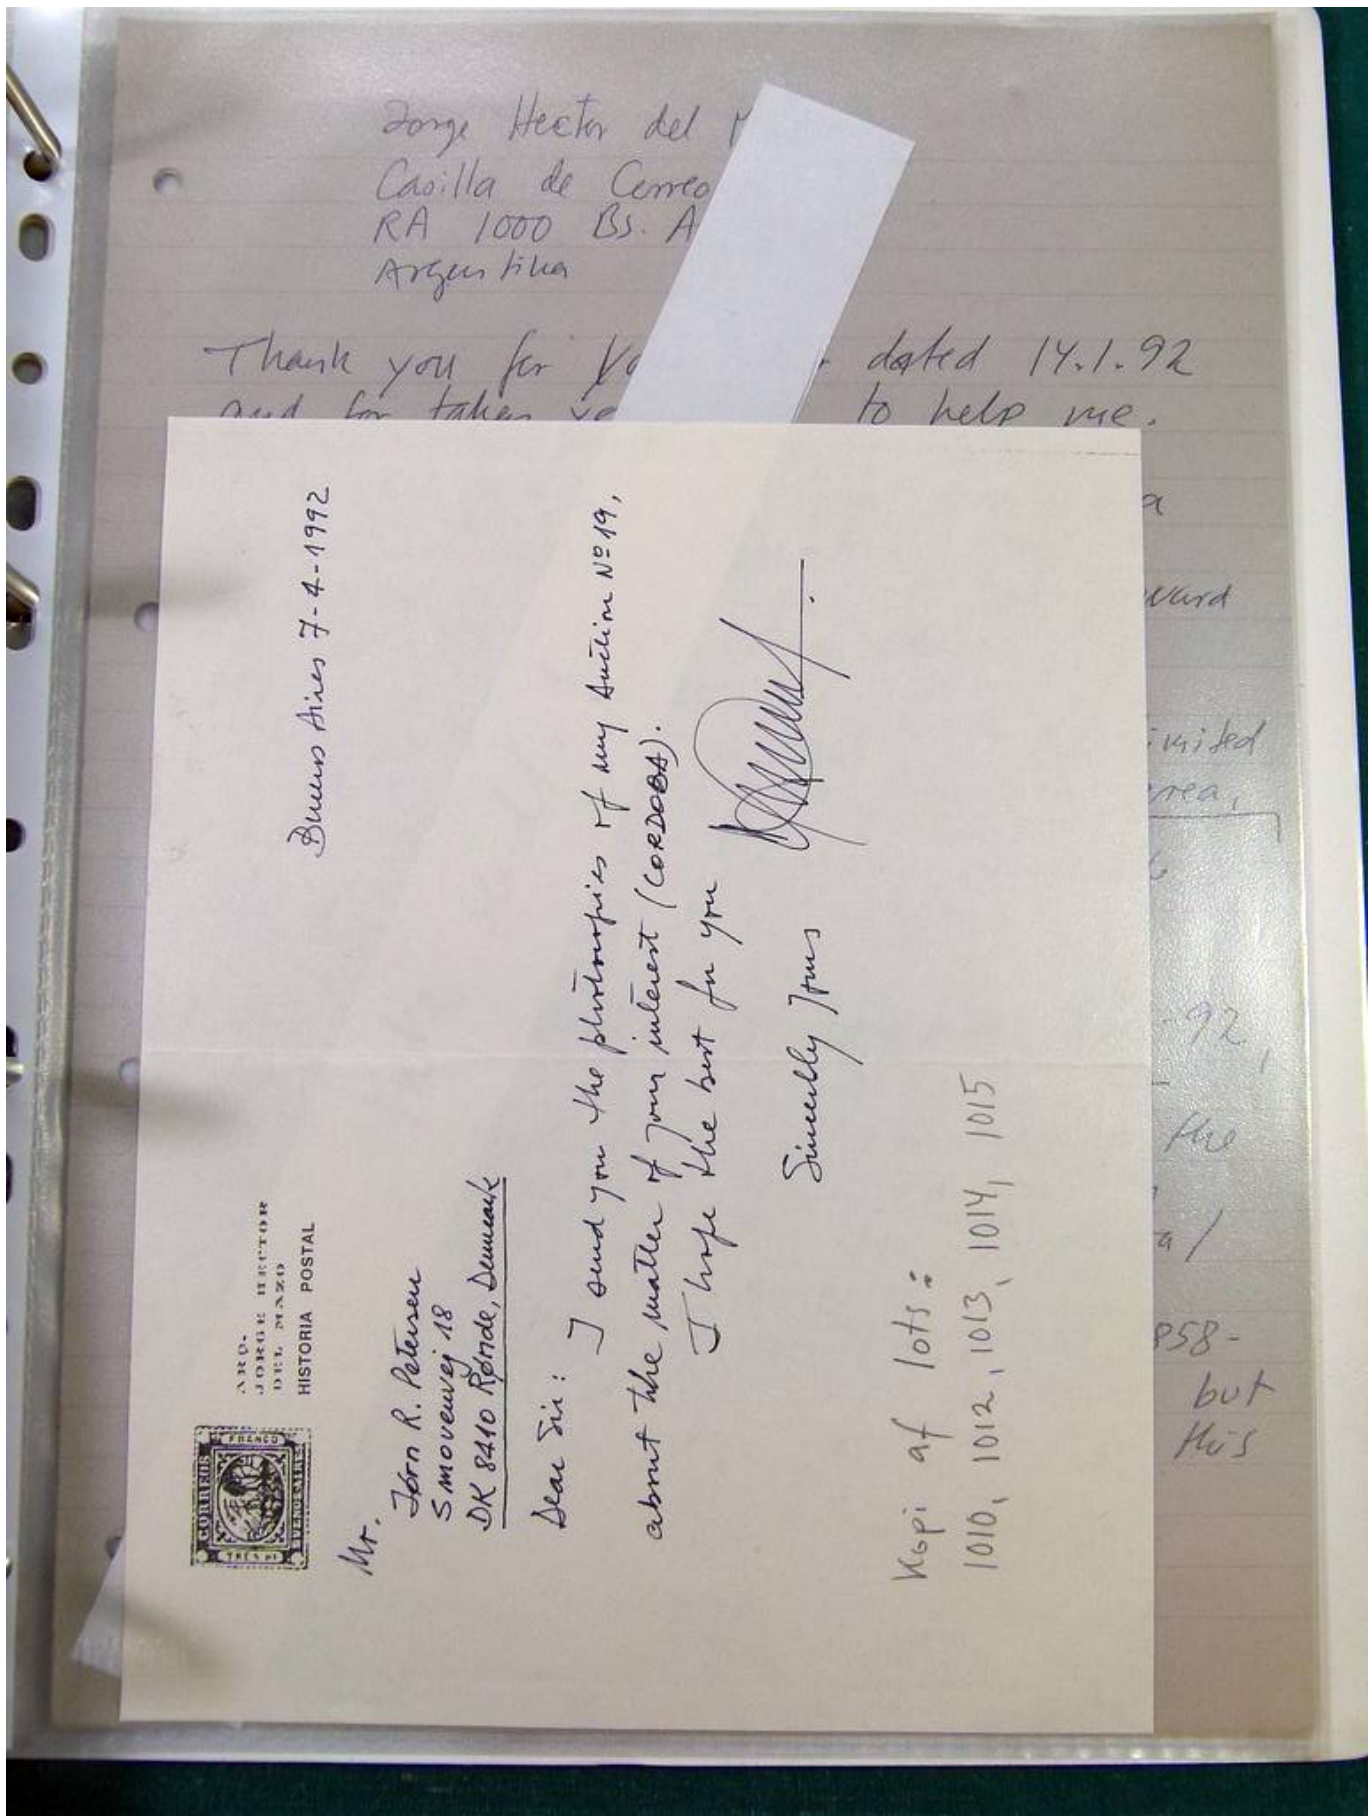 Jorge Hector del
Casilla de Correo
RA 1000 Bs. A
Argentina
Thank you for Yo dated 14.1.92
and for taken to help me.
a
ward
imited
area,
-92,
the
a/
858-
but
this
CORREOS
FRANCO
TRES Ps
BUENOS AIRES
ARQ.
JORGE HECTOR
DEL MAZO
HISTORIA POSTAL
Buenos Aires 7-4-1992
Mr.
Jørn R. Petersen
Smovenvej 18
DK 8410 Rønde, Denmark
Dear Sir:
I send you the photocopies of my Auction Nº 19,
about the matter of your interest (CORDOBA).
I hope the best for you
Sincerelly Yours
Kopi af lots:
1010, 1012, 1013, 1014, 1015